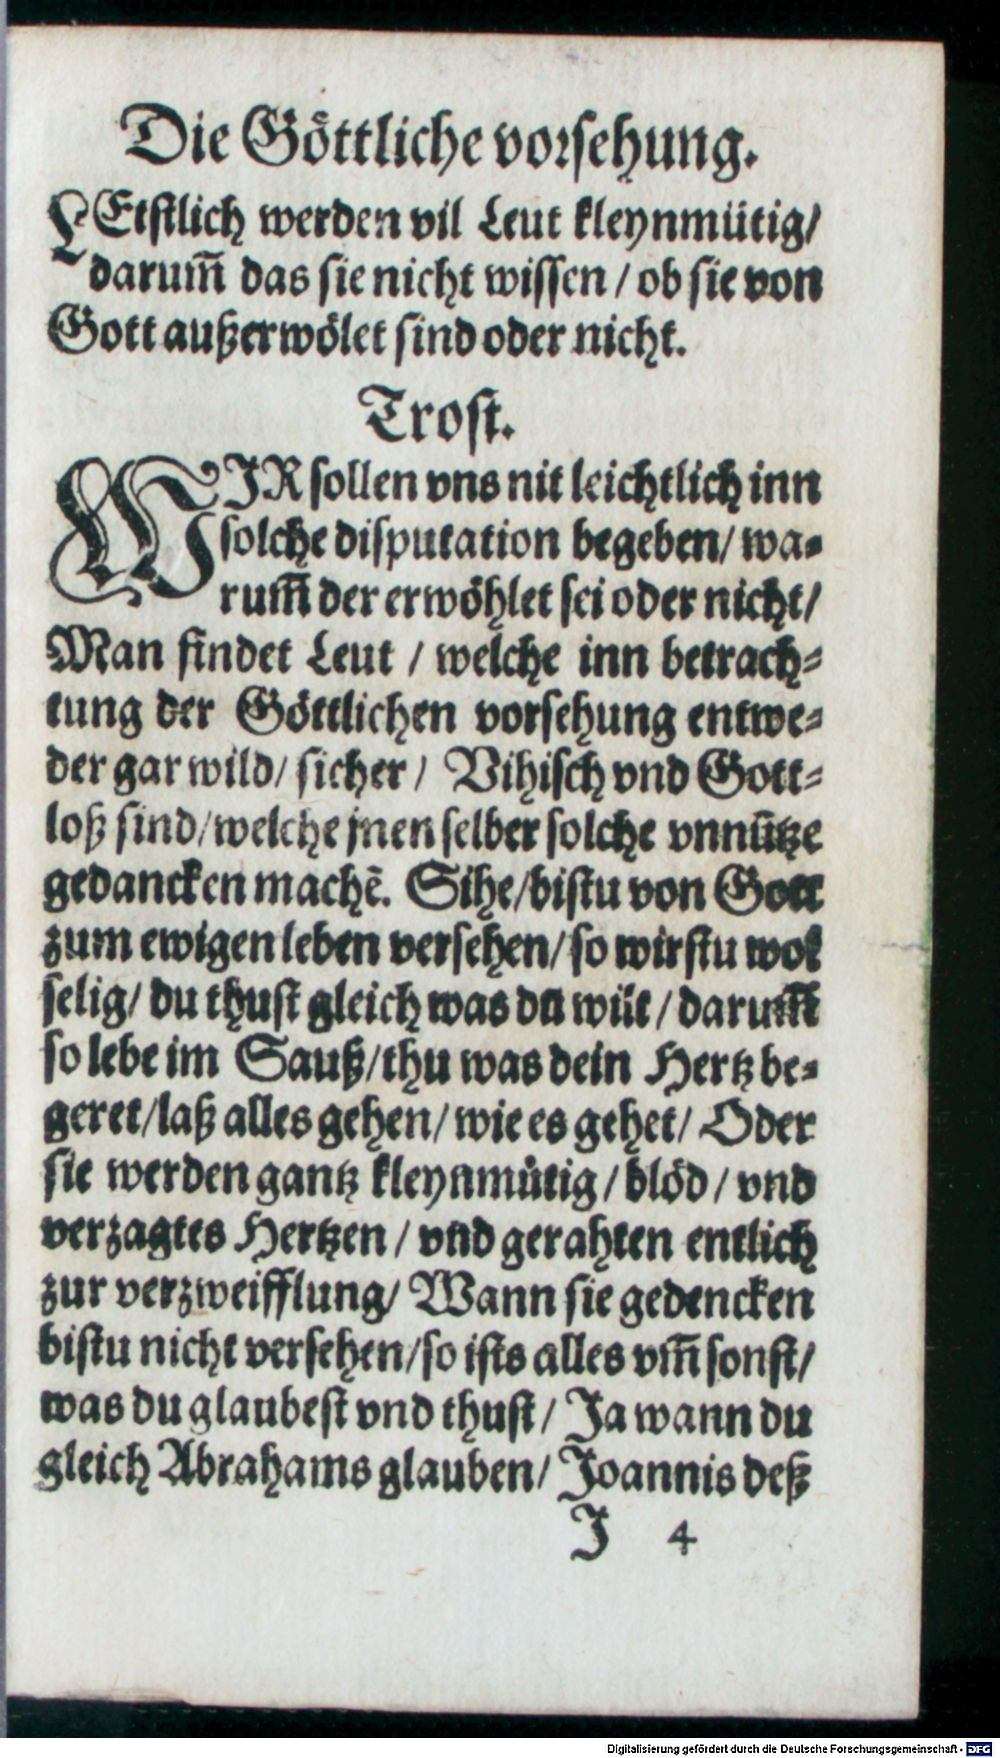 Die Göttliche vorsehung.
LEtstlich werden vil Leut kleynmütig/
darum̃ das sie nicht wissen / ob sie von
Gott außerwölet sind oder nicht.
Trost.
WIR sollen vns nit leichtlich inn
solche disputation begeben/ wa-
rum̃ der erwöhlet sei oder nicht/
Man findet Leut / welche inn betrach-
tung der Göttlichen vorsehung entwe-
der gar wild/ sicher / Vihisch vnd Gott-
loß sind/welche jnen selber solche vnnütze
gedancken machẽ. Sihe/bistu von Gott
zum ewigen leben versehen/ so wirstu wol
selig/ du thust gleich was du wilt / darum̃
so lebe im Sauß/thu was dein Hertz be-
geret/laß alles gehen/ wie es gehet/ Oder
sie werden gantz kleynmütig / blöd / vnd
verzagtes Hertzen / vnd gerahten entlich
zur verzweifflung/ Wann sie gedencken
bistu nicht versehen/so ists alles vm̃ sonst/
was du glaubest vnd thust/ Ja wann du
gleich Abrahams glauben/ Joannis deß
J 4
Digitalisierung gefördert durch die Deutsche Forschungsgemeinschaft - DFG